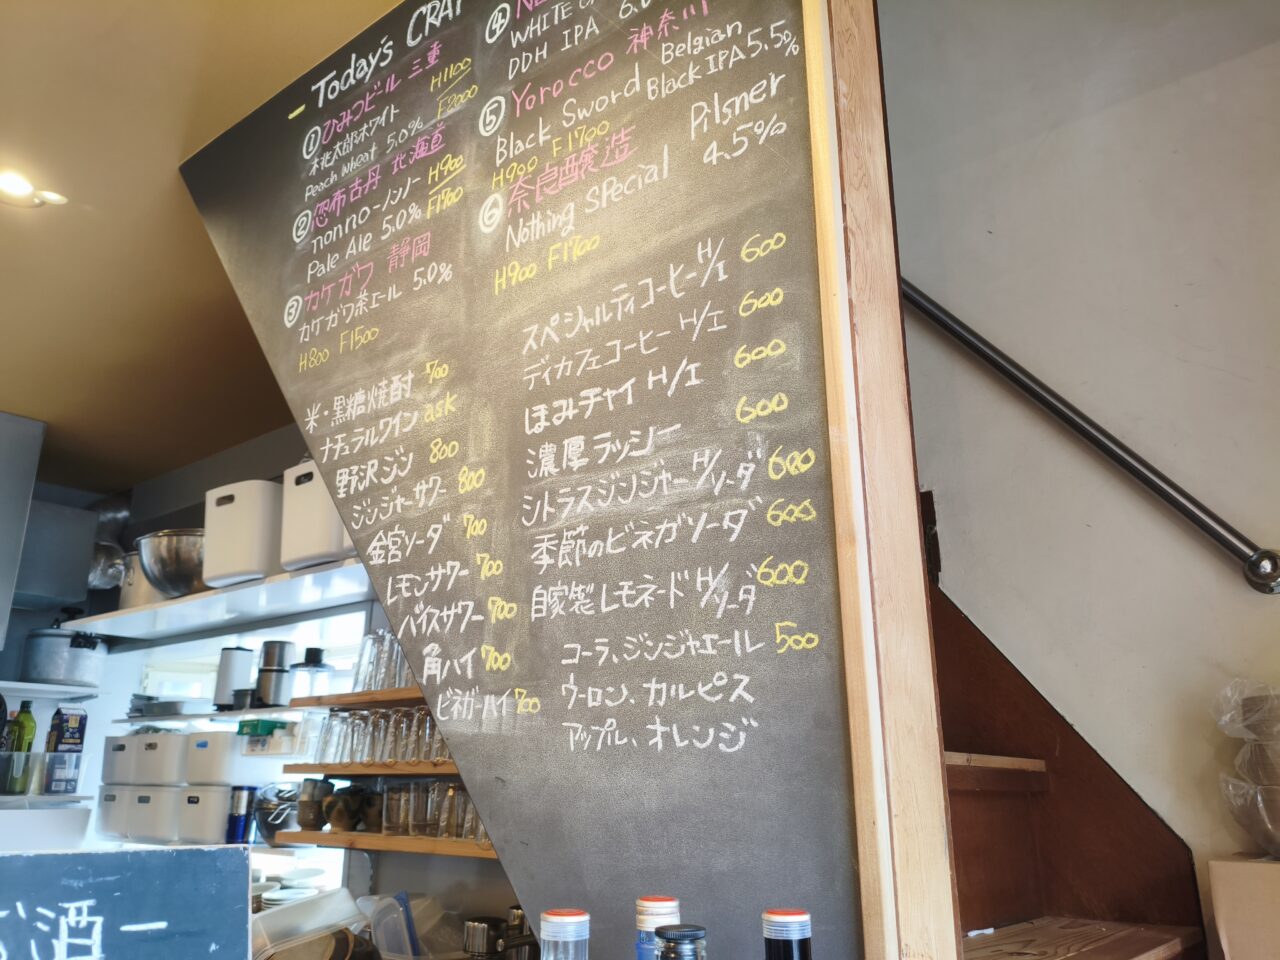 Today's CRAF
①ひみつビール 三重
桃太郎ホワイト H1100
Peach Wheat 5.0% F2000
②忽布古丹 北海道
nonno-ノンノ- H900
Pale Ale 5.0% F1700
③カケガワ 静岡
カケガワ茶エール 5.0%
H800 F1500
米・黒糖焼酎 700
ナチュラルワイン ask
野沢ジン 800
ジンジャーサワー 800
金宮ソーダ 700
レモンサワー 700
バイスサワー 700
角ハイ 700
ビネガーハイ 700
④
WHITE
DDH IPA 6.0
⑤Yorocco 神奈川
Black Sword Belgian
Black IPA 5.5%
H900 F1700
⑥奈良醸造
Nothing Special Pilsner
4.5%
H900 F1700
スペシャルティコーヒーH/I 600
ディカフェコーヒー H/I 600
ほみチャイ H/I 600
濃厚ラッシー 600
シトラスジンジャーH/ソーダ 600
季節のビネガソーダ 600
自家製レモネードH/ソーダ 600
コーラ、ジンジャエール 500
ウーロン、カルピス
アップル、オレンジ
酒ー